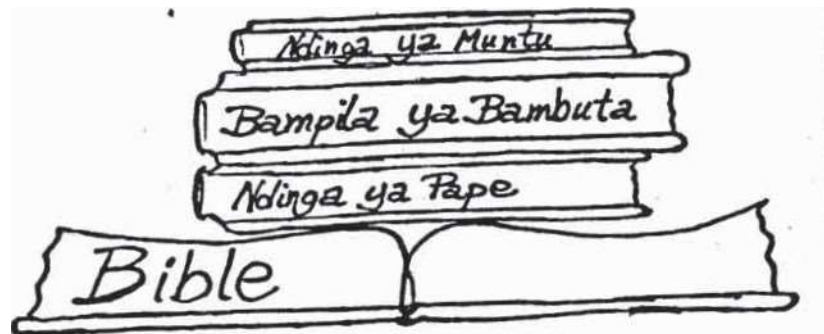 Ndinga ya Muntu
Bampila ya Bambuta
Ndinga ya Pape
Bible